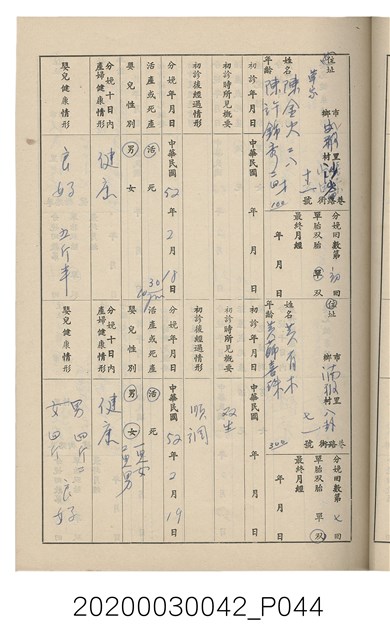 住址
鄉 市
村 里
號 街 路 巷
分娩回數第 初 回
單胎 双胎 單 双
最終月經
年 月 日
姓名 陳金火 二八
年齡 陳許錦秀 二四才
初診年月日
初診時所見概要
初診後經過情形
分娩年月日 中華民國 52 年 2 月 18 日
活產或死產 活 死
嬰兒性別 男 女
分娩十日內產婦健康情形 健康
嬰兒健康情形 良好 五斤半
住址
鄉 市
村 里
七 號 街 路 巷
分娩回數第 七 回
單胎 双胎 單 双
最終月經
年 月 日
姓名 黃有木
年齡
300
初診年月日
初診時所見概要 双生
初診後經過情形 順調
分娩年月日 中華民國 52 年 2 月 19 日
活產或死產 活 死
嬰兒性別 男 女
分娩十日內產婦健康情形 健康
嬰兒健康情形 男四斤二 女四斤 良好
20200030042_P044